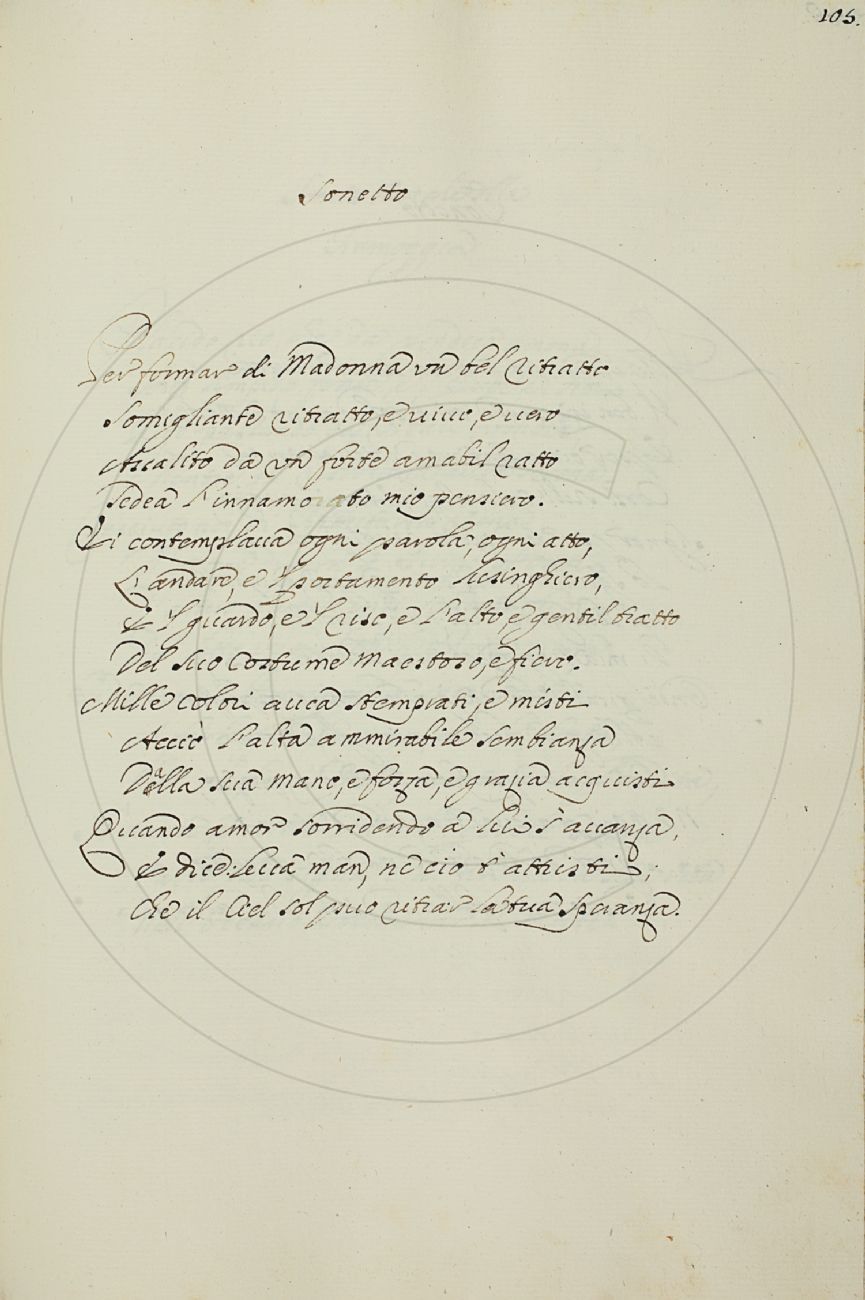 105.
Sonetto
Per formar di Madonna vn bel ritratto
Somigliante ritratto, e viuo, e uero
Assalito da vn forte amabil ratto
Sedea l'innamorato mio pensiero.
Ei contemplaua ogni parola, ogni atto,
L'andare, e 'l portamento lusinghiero,
E 'l guardo, e 'l riso, e l'alto, e gentil tratto
Del suo Costume maestoso, e fiero.
Mille Colori auea stemprati, e misti
Acciò l'alta ammirabile sembianza
Dalla sua mano, e forza, e grazia acquisti
Quando amor sorridendo a lui s'auanza,
E dice: leua man, ne ciò t'attristi;
Che il Ciel sol può ritrar la tua speranza.